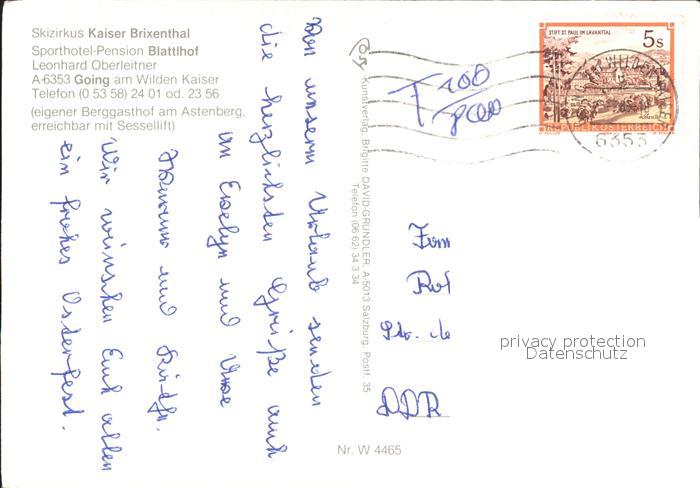 Skizirkus Kaiser Brixenthal
Sporthotel-Pension Blattlhof
Leonhard Oberleitner
A-6353 Going am Wilden Kaiser
Telefon (0 53 58) 24 01 od. 23 56
(eigener Berggasthof am Astenberg,
erreichbar mit Sessellift)
Von unserm Urlaub senden
die herzlichsten Grüße auch
an Evelyn und Uwe
und
Wir wünschen Euch allen
ein frohes Osterfest.
Kunstverlag Brigitte DAVID-GRÜNDLER A-5013 Salzburg, Postf. 35
Telefon (06 62) 34 3 34
T 100
STIFT ST. PAUL IM LAVANTTAL
5s
REPUBLIK ÖSTERREICH
6353
DDR
privacy protection
Datenschutz
Nr. W 4465